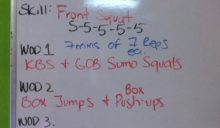 Skill: Front Squat
5-5-5-5-5
WOD 1. 7 mins of 7 Reps
ea.
KBS & GOB Sumo Squats
WOD 2. Box
Box Jumps & Push-ups
WOD 3.